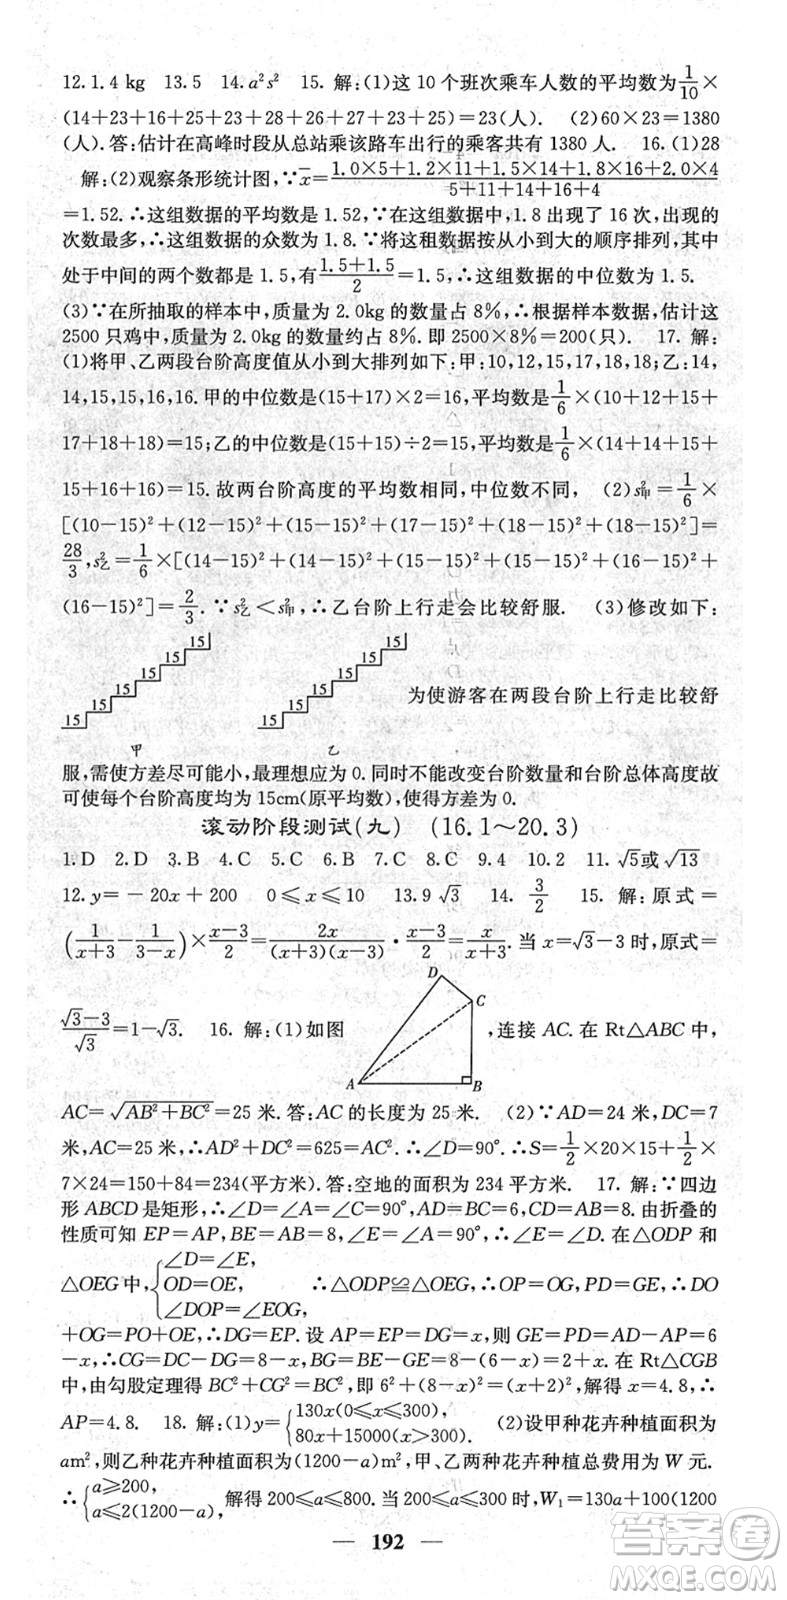 12.1.4 kg 13.5 14.a²s² 15. 解:(1)这 10 个班次乘车人数的平均数为1/10×
(14+23+16+25+23+28+26+27+23+25)=23(人). (2)60×23=1380
(人).答:估计在高峰时段从总站乘该路车出行的乘客共有 1380 人. 16.(1)28
解:(2)观察条形统计图,∵x̄=(1.0×5+1.2×11+1.5×14+1.8×16+2.0×4)/(5+11+14+16+4)
=1.52.∴这组数据的平均数是 1.52,∵在这组数据中,1.8 出现了 16 次,出现的
次数最多,∴这组数据的众数为 1.8.∵将这租数据按从小到大的顺序排列,其中
处于中间的两个数都是 1.5,有(1.5+1.5)/2=1.5,∴这组数据的中位数为 1.5.
(3)∵在所抽取的样本中,质量为 2.0kg 的数量占 8%,∴根据样本数据,估计这
2500 只鸡中,质量为 2.0kg 的数量约占 8%.即 2500×8%=200(只). 17. 解:
(1)将甲、乙两段台阶高度值从小到大排列如下:甲:10,12,15,17,18,18;乙:14,
14,15,15,16,16.甲的中位数是(15+17)×2=16,平均数是1/6×(10+12+15+
17+18+18)=15;乙的中位数是(15+15)÷2=15,平均数是1/6×(14+14+15+
15+16+16)=15.故两台阶高度的平均数相同,中位数不同, (2)s²甲=1/6×
[(10-15)²+(12-15)²+(15-15)²+(17-15)²+(18-15)²+(18-15)²]=
28/3,s²乙=1/6×[(14-15)²+(14-15)²+(15-15)²+(15-15)²+(16-15)²+
(16-15)²]=2/3.∵s²乙<s²甲,∴乙台阶上行走会比较舒服. (3)修改如下:
15 15 15 15 15 15
15 15 15 15 15 15
为使游客在两段台阶上行走比较舒
甲 乙
服,需使方差尽可能小,最理想应为 0.同时不能改变台阶数量和台阶总体高度故
可使每个台阶高度均为 15cm(原平均数),使得方差为 0.
滚动阶段测试(九) (16.1～20.3)
1.D 2.D 3.B 4.C 5.C 6.C 7.C 8.C 9.4 10.2 11.√5或√13
12.y=-20x+200 0≤x≤10 13.9√3 14. 3/2 15. 解:原式=
(1/(x+3)-1/(3-x))×(x-3)/2=2x/((x+3)(x-3))·(x-3)/2=x/(x+3).当 x=√3-3 时,原式=
(√3-3)/√3=1-√3. 16. 解:(1)如图
D C A B
,连接 AC.在 Rt△ABC 中,
AC=√(AB²+BC²)=25 米.答:AC 的长度为 25 米. (2)∵AD=24 米,DC=7
米,AC=25 米,∴AD²+DC²=625=AC².∴∠D=90°.∴S=1/2×20×15+1/2×
7×24=150+84=234(平方米).答:空地的面积为 234 平方米. 17. 解:∵四边
形 ABCD 是矩形,∴∠D=∠A=∠C=90°,AD=BC=6,CD=AB=8.由折叠的
性质可知 EP=AP,BE=AB=8,∠E=∠A=90°.∴BE=DC.在△ODP 和
△OEG 中,{∠D=∠E, OD=OE, ∠DOP=∠EOG, ∴△ODP≌△OEG,∴OP=OG,PD=GE,∴DO
+OG=PO+OE,∴DG=EP.设 AP=EP=DG=x,则 GE=PD=AD-AP=6
-x,∴CG=DC-DG=8-x,BG=BE-GE=8-(6-x)=2+x.在 Rt△CGB
中,由勾股定理得 BC²+CG²=BG²,即 6²+(8-x)²=(x+2)²,解得 x=4.8,∴
AP=4.8. 18. 解:(1)y={130x(0≤x≤300), 80x+15000(x>300). (2)设甲种花卉种植面积为
am²,则乙种花卉种植面积为(1200-a)m²,甲、乙两种花卉种植总费用为 W 元.
∴{a≥200, a≤2(1200-a), 解得 200≤a≤800.当 200≤a≤300 时,W₁=130a+100(1200
192
答案圈
MXQE.COM